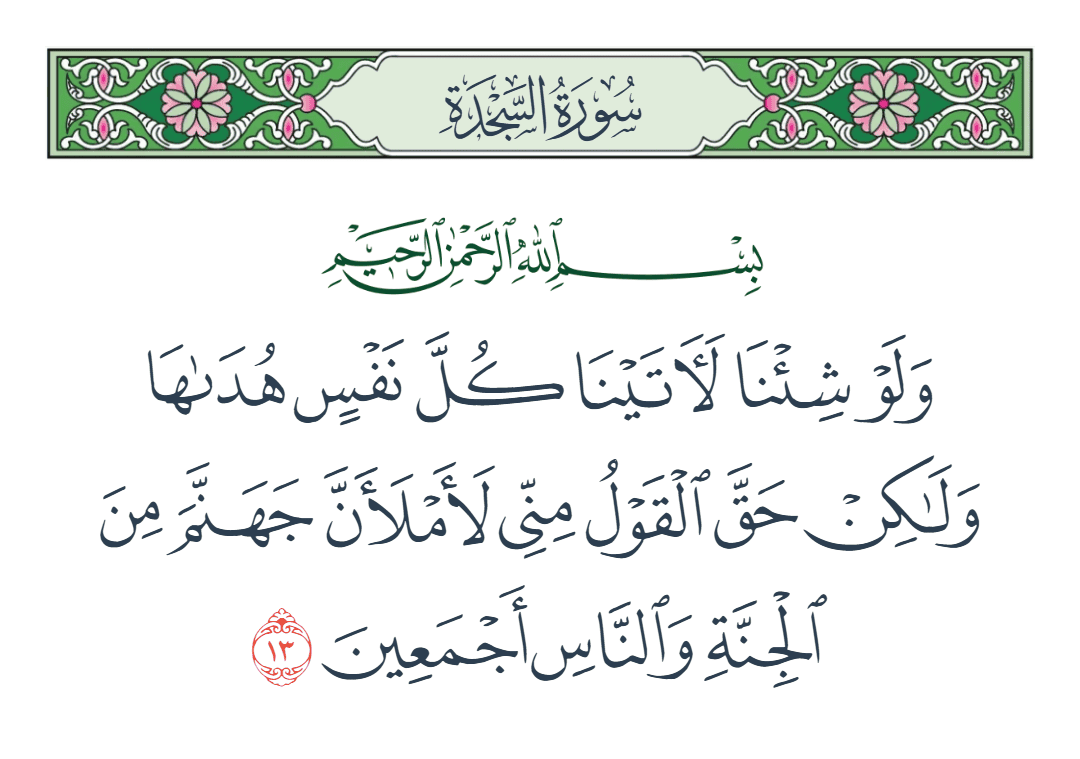 سُورَةُ السَّجْدَةِ
بِسْمِ ٱللَّهِ ٱلرَّحْمَٰنِ ٱلرَّحِيمِ
وَلَوْ شِئْنَا لَأَتَيْنَا كُلَّ نَفْسٍ هُدَىٰهَا
وَلَٰكِنْ حَقَّ ٱلْقَوْلُ مِنِّى لَأَمْلَأَنَّ جَهَنَّمَ مِنَ
ٱلْجِنَّةِ وَٱلنَّاسِ أَجْمَعِينَ ١٣